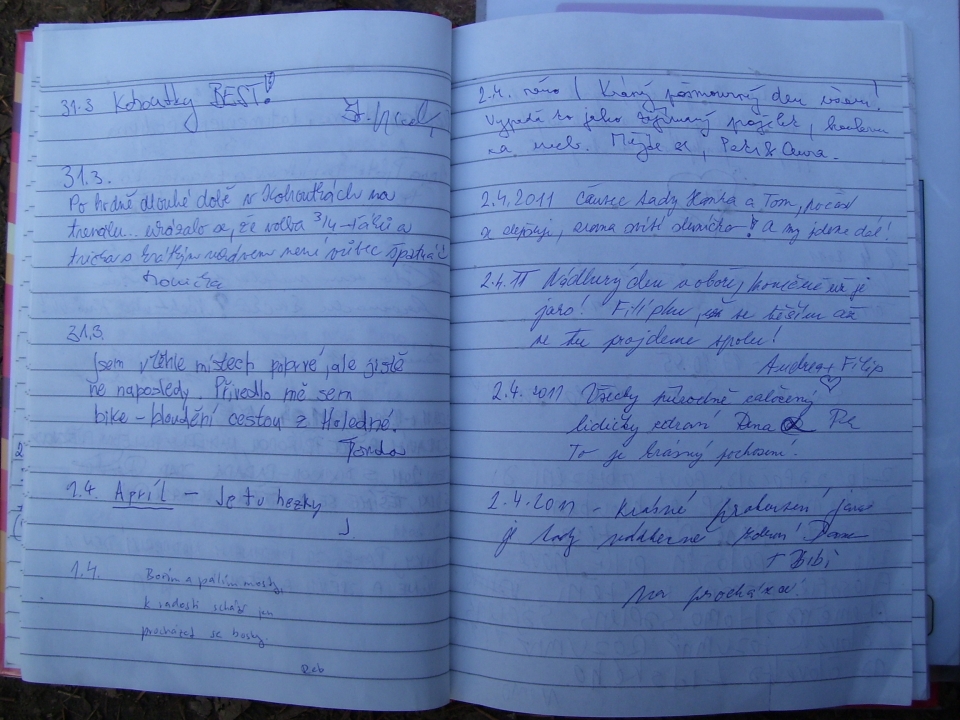 31.3 Kohoutky BEST!
31.3.
Po hodně dlouhé době v Kohoutkách na
trenglu... ukázalo se, že volba 3/4-ťáků a
trička s krátkým rukávem není vůbec špatná!
31.3.
Jsem v těhle místech poprvé, ale jistě
ne naposledy. Přivedlo mě sem
bike - bloudění cestou z Holedné.
Fonda
1.4. Apríl - Je tu hezky
J
1.4. Bořím a pálím mosty,
k radosti schází jen
procházet se bosky.
2.4. ráno! Krásný den všem!
Vypadá to jako
na nebi. Mějte se, Petr & 
2.4.2011 Čauec tady Hanka a Tom, počasí
se zlepšuje, svítí sluníčko! A my jdeme dál!
2.4.11 Nádherný den v oboře, konečně už je
jaro! Filípku, se těším až
se tu projdeme spolu!
Andrea + Filip
2.4.2011 Všecky přírodně založený
lidičky zdraví Dana
To je krásný počasí!
2.4.2011 - Krásné jarní
je tady nádherné zdraví Dana
+ Bibi
Na procházce!